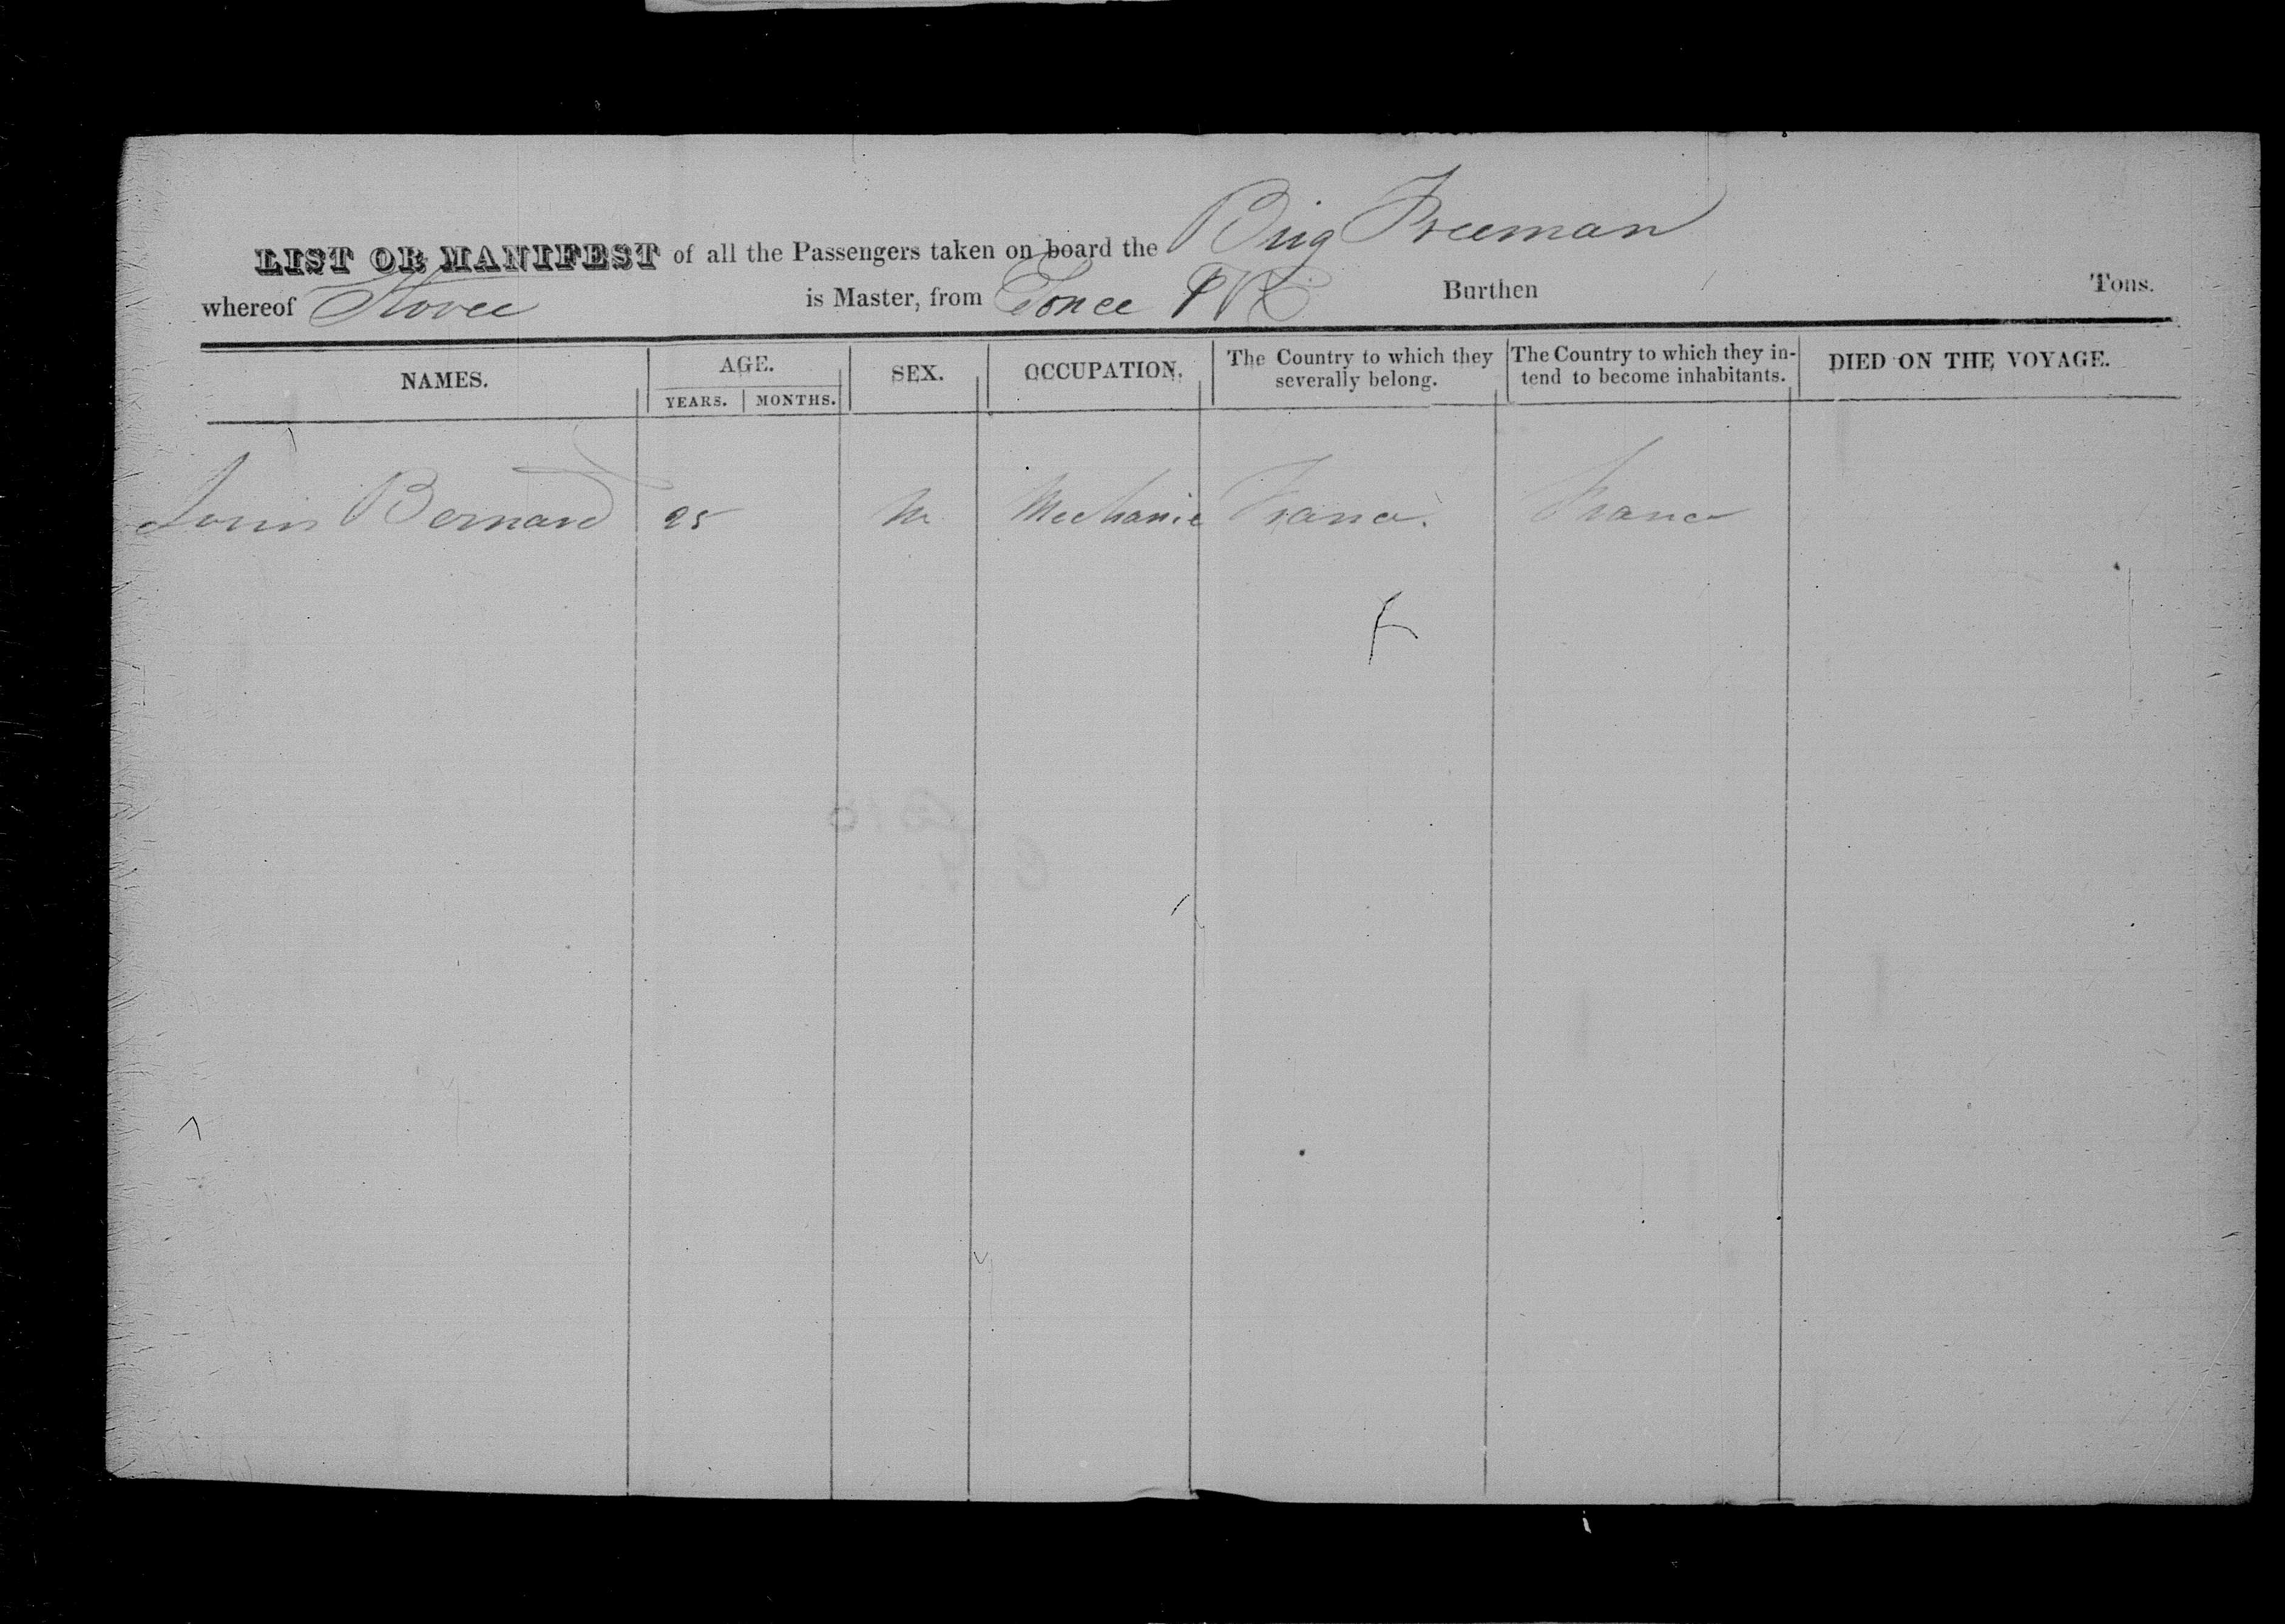 LIST OR MANIFEST of all the Passengers taken on board the Brig Freeman
whereof is Master, from Ponce P R Burthen Tons.
NAMES. AGE. SEX. OCCUPATION. The Country to which they severally belong. The Country to which they intend to become inhabitants. DIED ON THE VOYAGE.
YEARS. MONTHS.
Louis Bernard 25 M Mechanic France. France